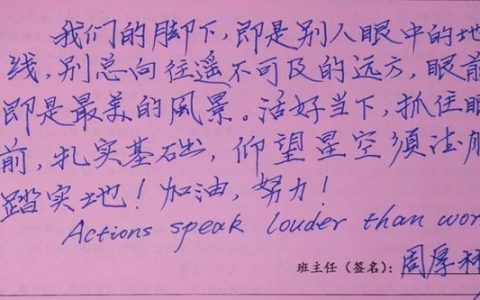 我们的脚下，即是别人眼中的地
线，别总向往遥不可及的远方，眼前
即是最美的風景。活好当下，抓住眼
前，扎实基础，仰望星空须法脚
踏实地！加油，努力！
Actions speak louder than wor
班主任（签名）：周厚